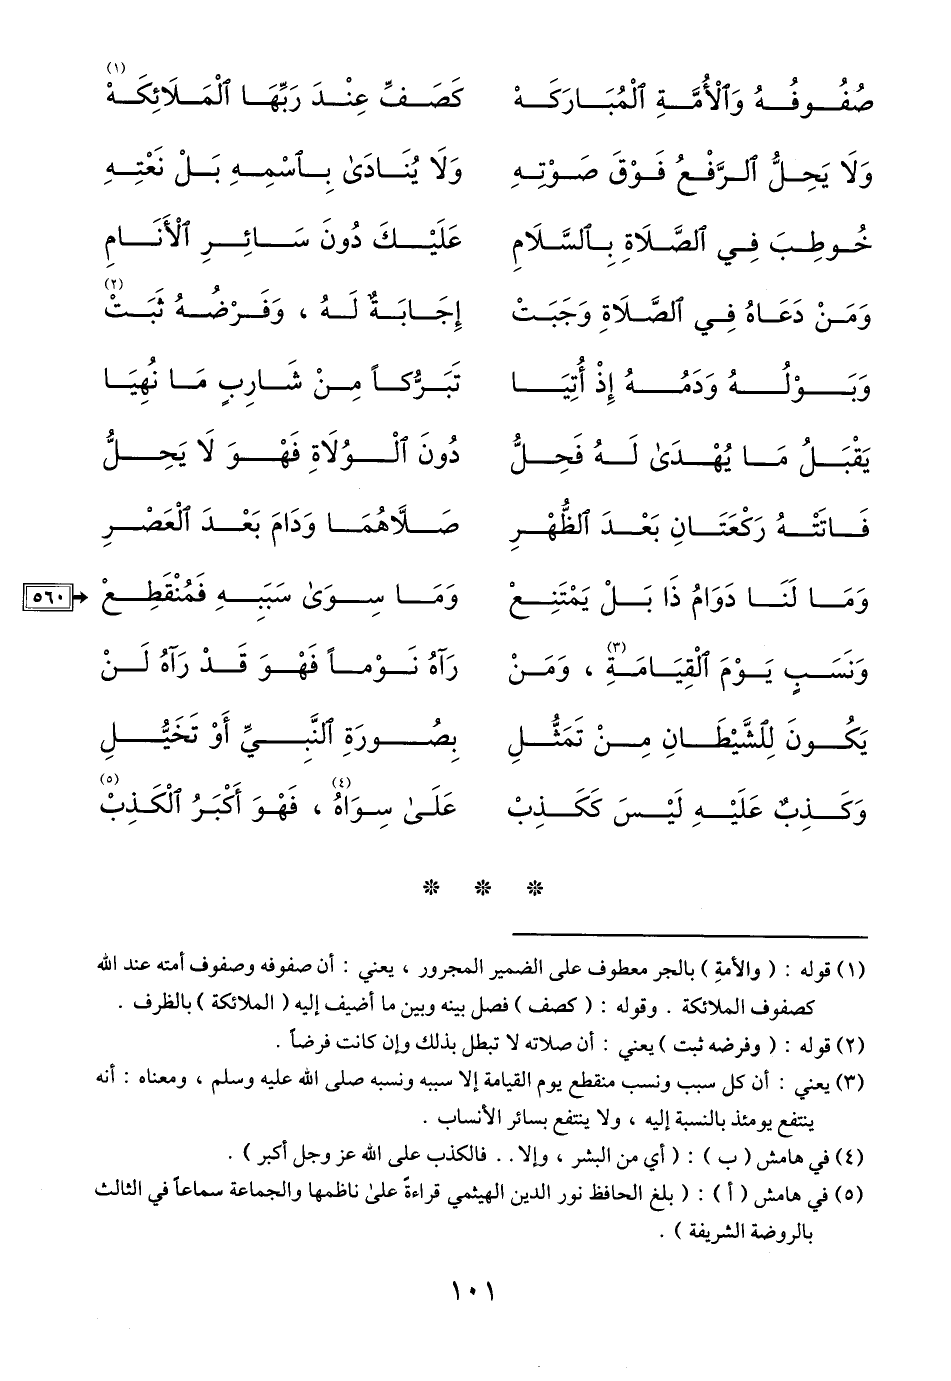 صُفُوفُهُ وَٱلْأُمَّةِ ٱلْمُبَارَكَهْ كَصَفِّ عِنْدَ رَبِّهَا ٱلْمَلَائِكَهْ (١)
وَلَا يَحِلُّ ٱلرَّفْعُ فَوْقَ صَوْتِهِ وَلَا يُنَادَىٰ بِٱسْمِهِ بَلْ نَعْتِهِ
خُوطِبَ فِي ٱلصَّلَاةِ بِٱلسَّلَامِ عَلَيْكَ دُونَ سَائِرِ ٱلْأَنَامِ
وَمَنْ دَعَاهُ فِي ٱلصَّلَاةِ وَجَبَتْ إِجَابَةٌ لَهُ ، وَفَرْضُهُ ثَبَتْ (٢)
وَبَوْلُهُ وَدَمُهُ إِذْ أُتِيَا تَبَرُّكاً مِنْ شَارِبٍ مَا نُهِيَا
يَقْبَلُ مَا يُهْدَىٰ لَهُ فَحِلُّ دُونَ ٱلْوُلَاةِ فَهْوَ لَا يَحِلُّ
فَاتَتْهُ رَكْعَتَانِ بَعْدَ ٱلظُّهْرِ صَلَّاهُمَا وَدَامَ بَعْدَ ٱلْعَصْرِ
وَمَا لَنَا دَوَامُ ذَا بَلْ يَمْتَنِعْ وَمَا سِوَىٰ سَبَبِهِ فَمُنْقَطِعْ ٥٦٠
وَنَسَبٍ يَوْمَ ٱلْقِيَامَةِ (٣) ، وَمَنْ رَآهُ نَوْماً فَهْوَ قَدْ رَآهُ لَنْ
يَكُونَ لِلشَّيْطَانِ مِنْ تَمَثُّلِ بِصُورَةِ ٱلنَّبِيِّ أَوْ تَخَيُّلِ
وَكَذِبٌ عَلَيْهِ لَيْسَ كَكَذِبْ عَلَىٰ سِوَاهُ (٤) ، فَهْوَ أَكْبَرُ ٱلْكَذِبْ (٥)
* * *
(١) قوله : ( والأمةِ ) بالجر معطوف على الضمير المجرور ، يعني : أن صفوفه وصفوف أمته عند الله
كصفوف الملائكة . وقوله : ( كصف ) فصل بينه وبين ما أضيف إليه ( الملائكة ) بالظرف .
(٢) قوله : ( وفرضه ثبت ) يعني : أن صلاته لا تبطل بذلك وإن كانت فرضاً .
(٣) يعني : أن كل سبب ونسب منقطع يوم القيامة إلا سببه ونسبه صلى الله عليه وسلم ، ومعناه : أنه
ينتفع يومئذ بالنسبة إليه ، ولا ينتفع بسائر الأنساب .
(٤) في هامش ( ب ) : ( أي من البشر ، وإلا . . فالكذب على الله عز وجل أكبر ) .
(٥) في هامش ( أ ) : ( بلغ الحافظ نور الدين الهيثمي قراءةً علىٰ ناظمها والجماعة سماعاً في الثالث
بالروضة الشريفة ) .
١٠١